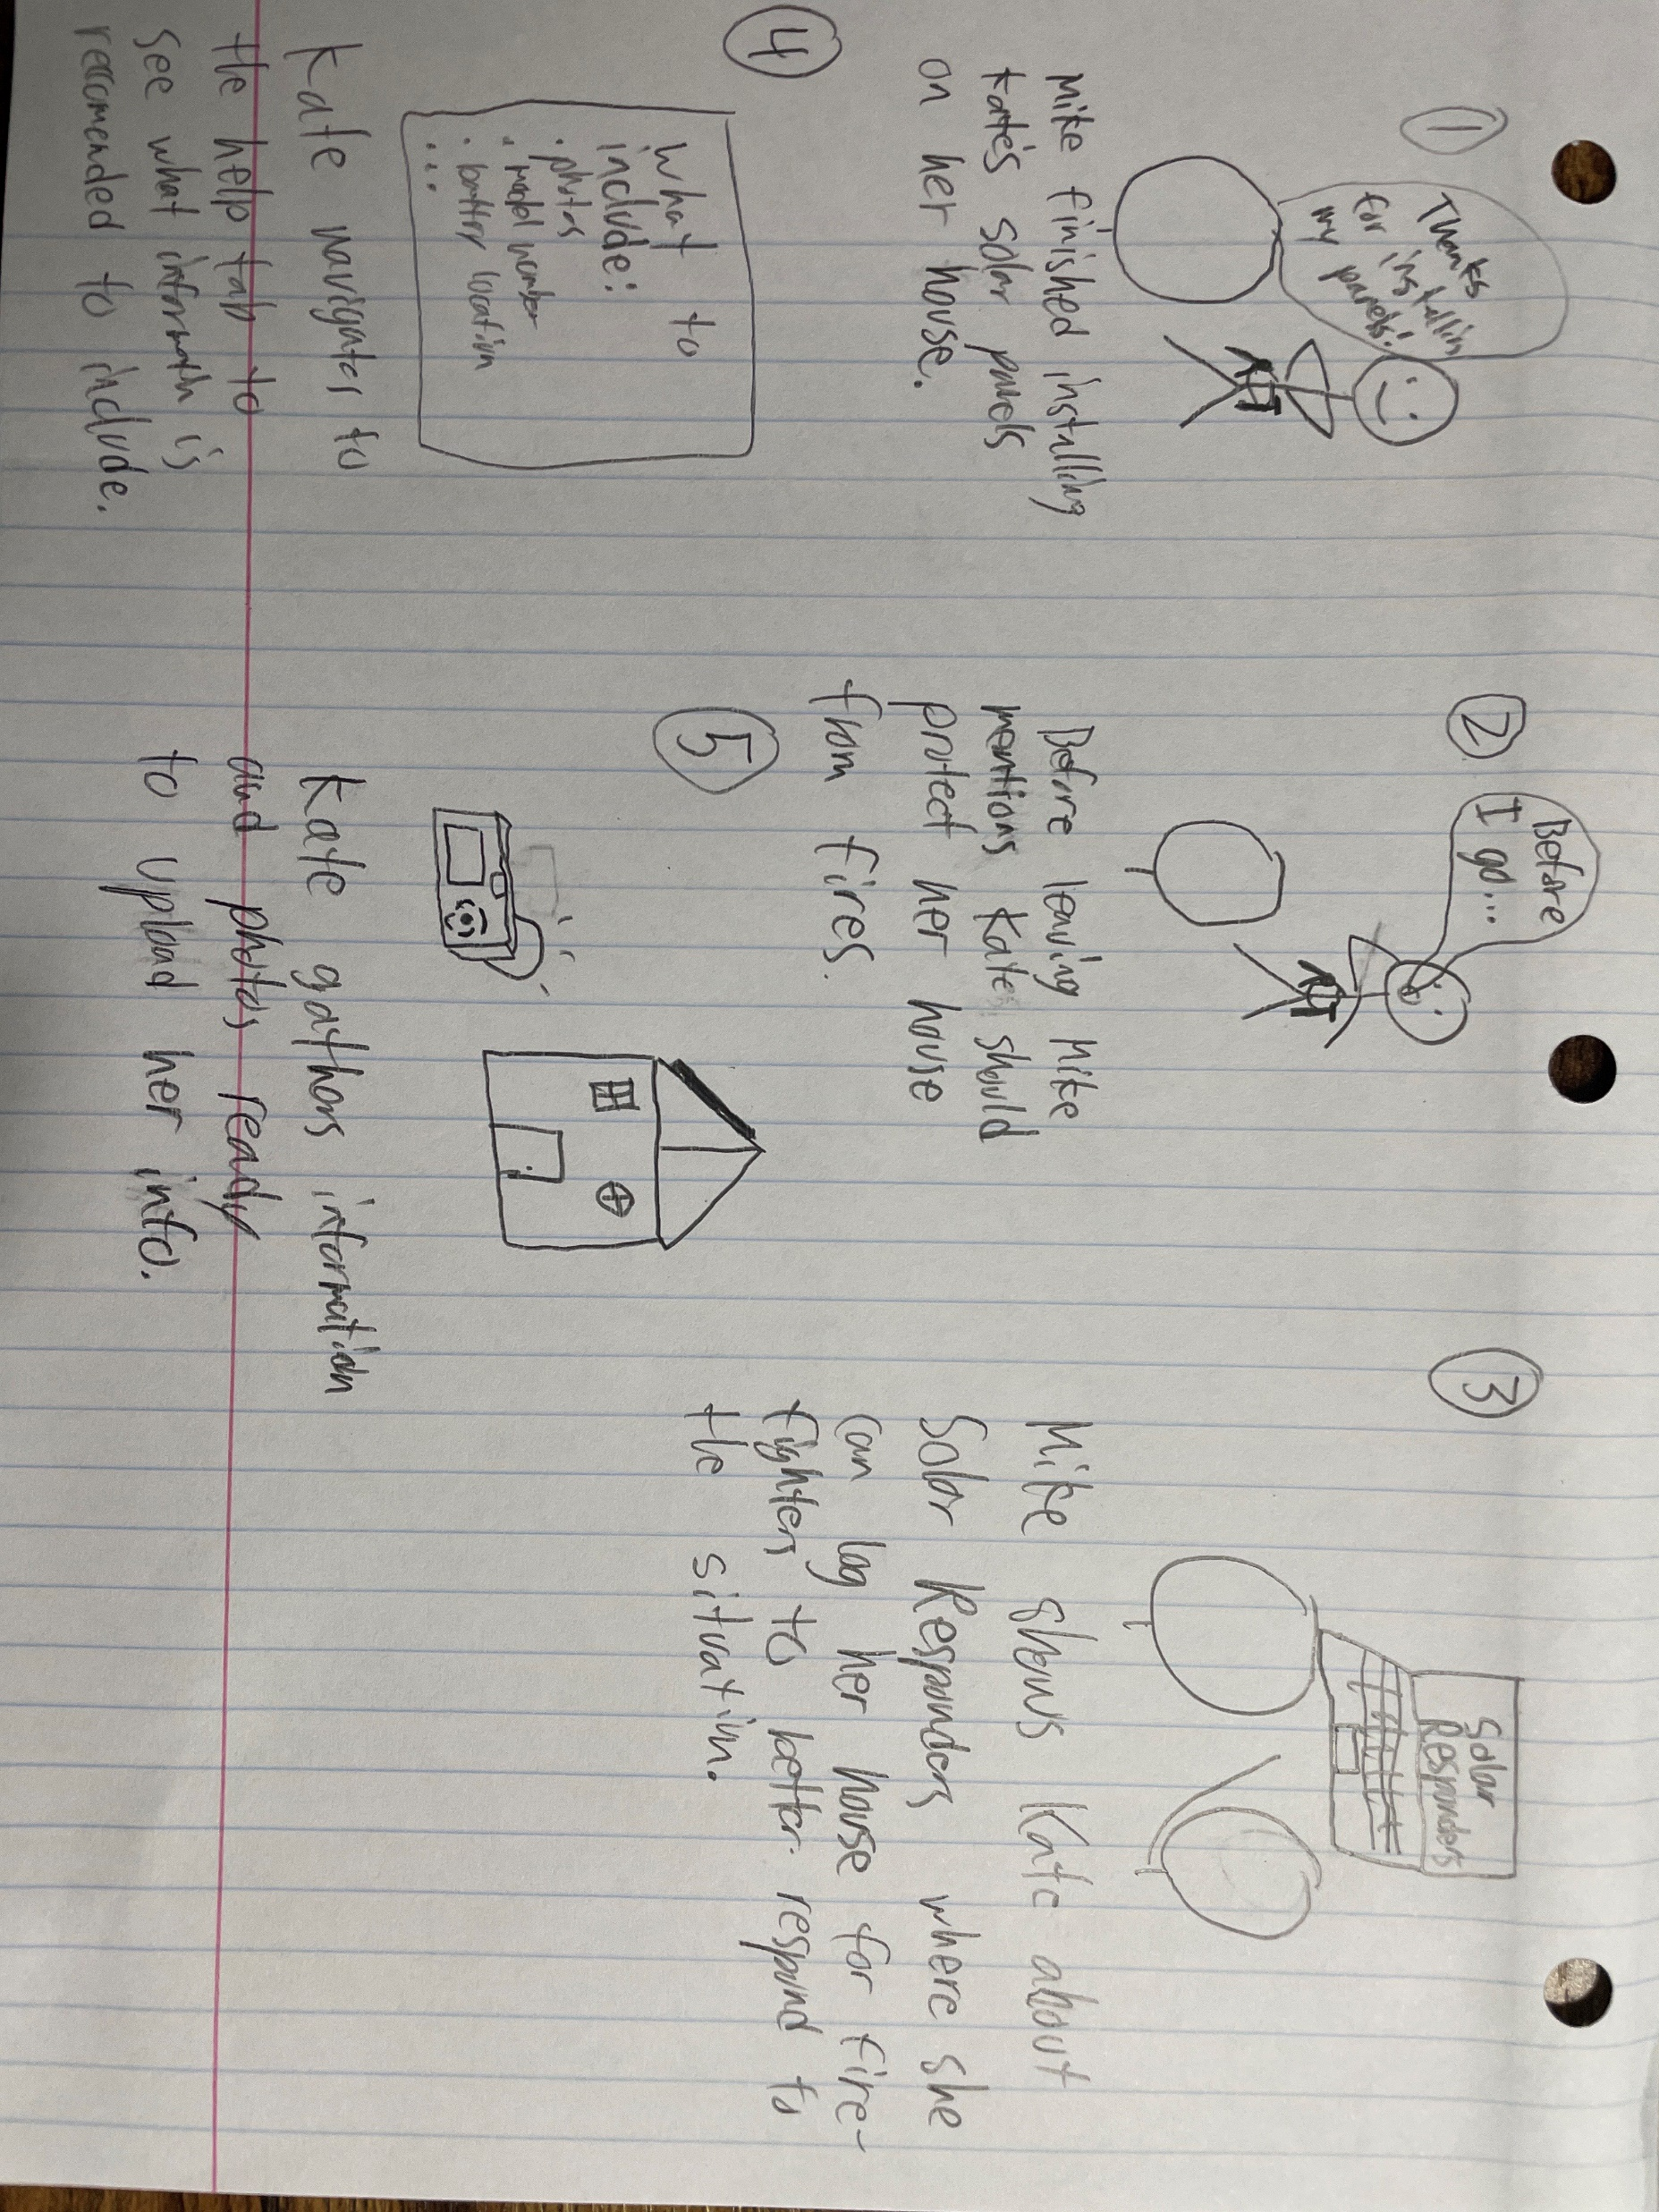 1
Thanks
for installin
my panels!
Mike finished installing
Kate's solar panels
on her house.
2
Before
I go...
Before leaving Mike
mentions Kate should
protect her house
from fires.
3
Solar
Responders
Mike shows Kate about
Solar Responders where she
can log her house for fire-
fighters to better respond to
the situation.
4
what to
include:
· photos
· model number
· battery location
...
Kate navigates to
the help tab to
see what informatn is
reccomended to include.
5
Kate gathers information
and photos ready
to upload her info.